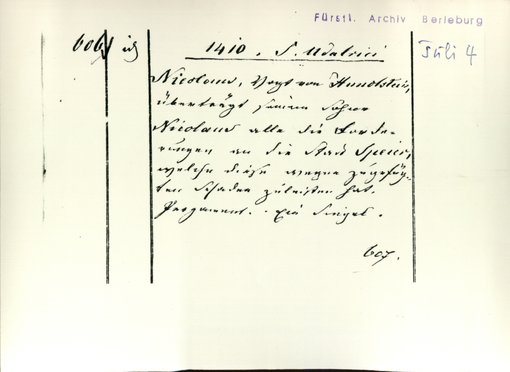 Fürstl. Archiv Berleburg
606
1410. S. Udalrici
Juli 4
Nicolaus, Vogt von Hunolstein,
überträgt seinem Sohne
Nicolaus alle die Forde-
rungen an die Stadt Speier,
welche diese wegen zugefüg-
ten Schaden zu leisten hat.
Pergament. Ein Siegel.
607.